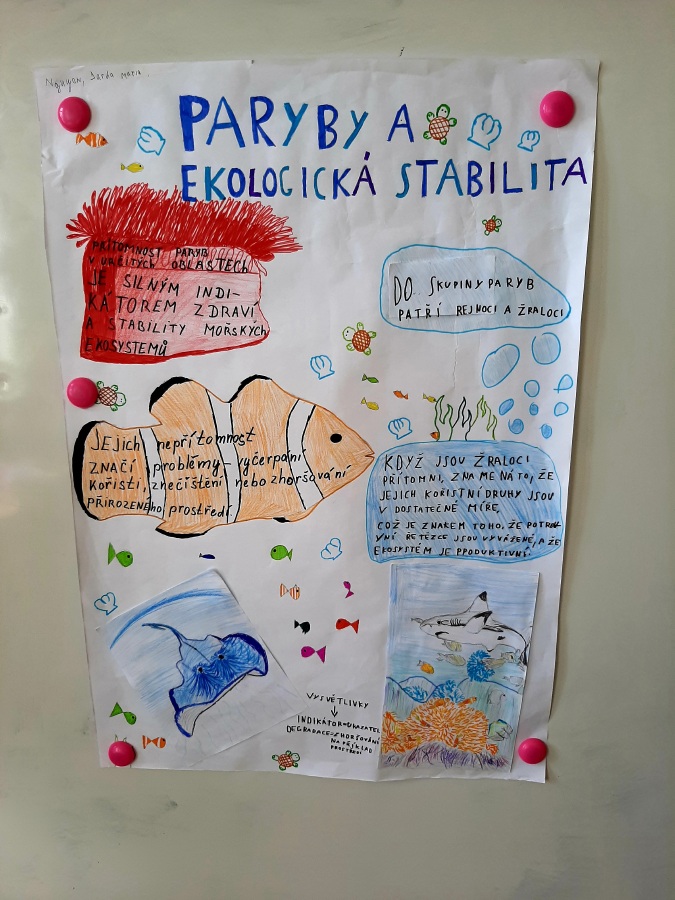 Nguyen, Jarda Maria.
PARYBY A
EKOLOGICKÁ STABILITA
PŘÍTOMNOST PARYB
V URČITÝCH OBLASTECH
JE SILNÝM INDI-
KÁTOREM ZDRAVÍ
A STABILITY MOŘSKÝCH
EKOSYSTEMŮ
DO SKUPINY PARYB
PATŘÍ REJNOCI A ŽRALOCI
JEJICH nepřítomnost
ZNAČÍ problémy - vyčerpání
kořisti, znečištění nebo zhoršování
PŘIROZENého prostředí.
KDYŽ JSOU ŽRALOCI
PŘÍTOMNI, ZNAMENÁ TO, ŽE
JEJICH KOŘISTNÍ DRUHY JSOU
V DOSTATEČNÉ MÍŘE,
COŽ JE ZNAKEM TOHO, ŽE POTRAV-
VNÍ ŘETĚZCE JSOU VYVÁŽENÉ, A ŽE
EKOSYSTÉM JE PPODUKTIVNÍ.
VYSVĚTLIVKY
INDIKÁTOR=UKAZATEL
DEGRADACE=ZHORŠOVÁNÍ
NAPŘÍKLAD
PROSTŘEDÍ